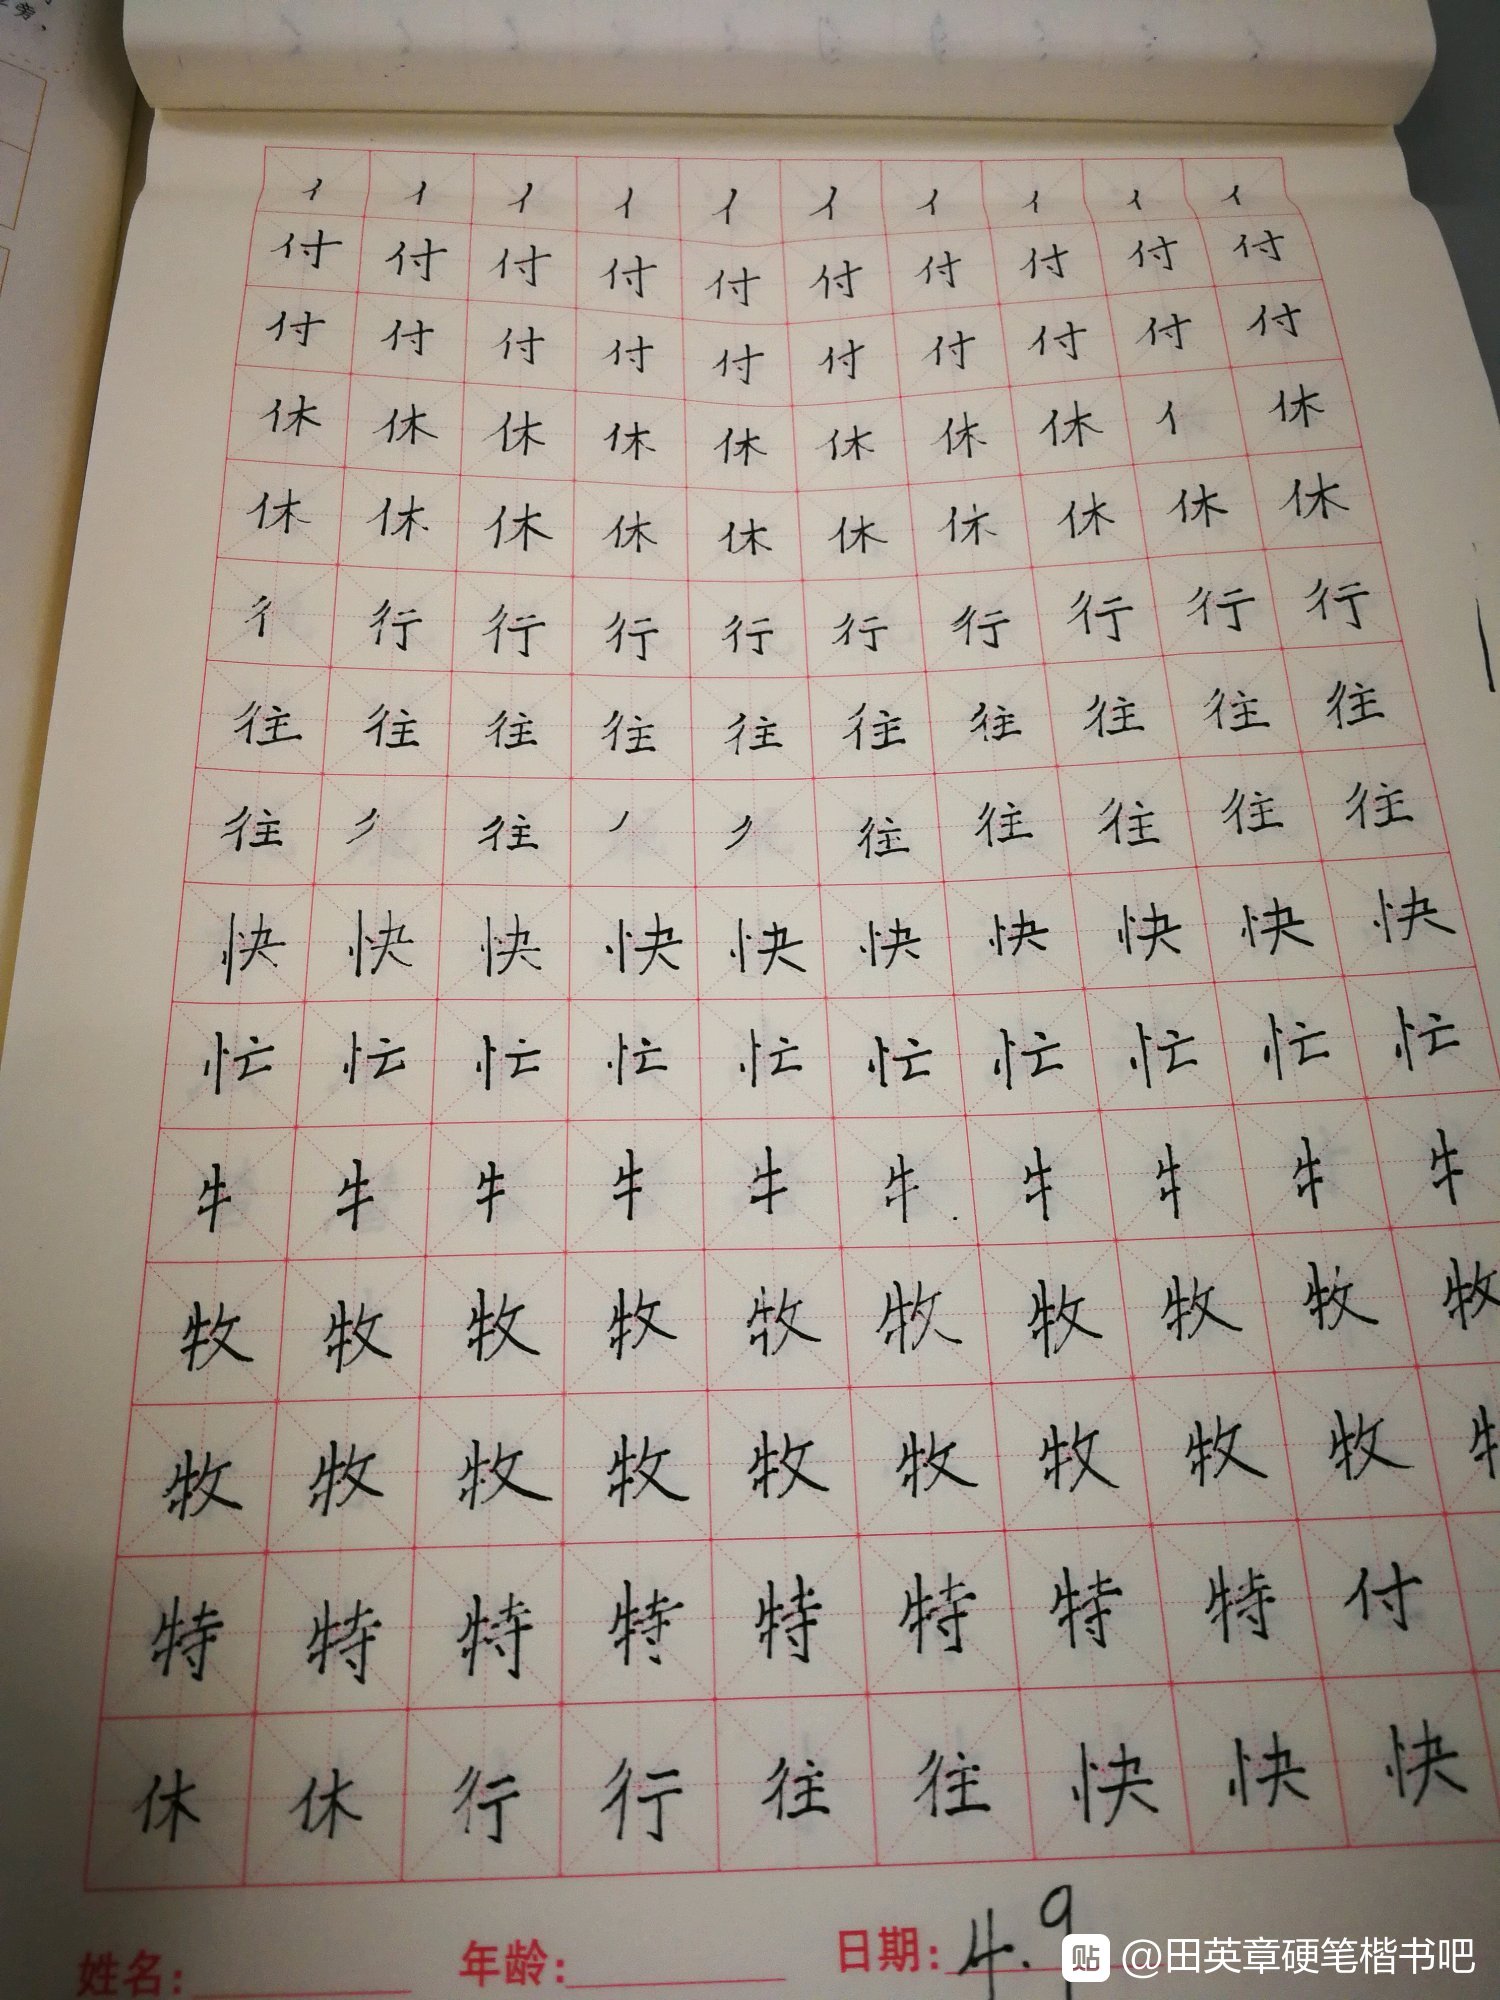 亻 亻 亻 亻 亻 亻 亻 亻 亻 亻
付 付 付 付 付 付 付 付 付 付
付 付 付 付 付 付 付 付 付 付
休 休 休 休 休 休 休 休 亻 休
休 休 休 休 休 休 休 休 休 休
彳 行 行 行 行 行 行 行 行 行
往 往 往 往 往 往 往 往 往 往
往 彡 往 丿 彡 往 往 往 往 往
快 快 快 快 快 快 快 快 快 快
忙 忙 忙 忙 忙 忙 忙 忙 忙 忙
牜 牜 牜 牜 牜 牜 牜 牜 牜 牜
牧 牧 牧 牧 牧 牧 牧 牧 牧 牧
牧 牧 牧 牧 牧 牧 牧 牧 牧
特 特 特 特 特 特 特 特 付
休 休 行 行 往 往 快 快 快
姓名: 年龄: 日期: 4.9
贴 @田英章硬笔楷书吧